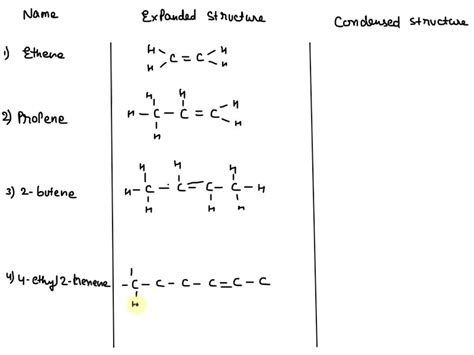 Name Expanded Structure Condensed Structure
1) Ethene
H H
C = C
H H
2) Propene
H H H
H - C - C = C
H H
3) 2-butene
H H H
H - C - C = C - C - H
H H H
4) 4-ethyl 2-hexene
- C - C - C - C = C - C
H